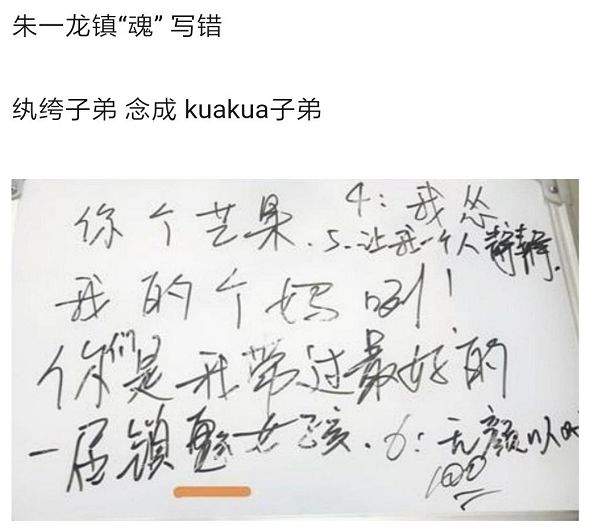 朱一龙镇“魂” 写错
纨绔子弟 念成 kuakua子弟
你个芒果. 4：我怂
5.让我一个人静静.
我的个妈咧！
你们是我带过最好的
一届镇女孩. 6：无颜以
100